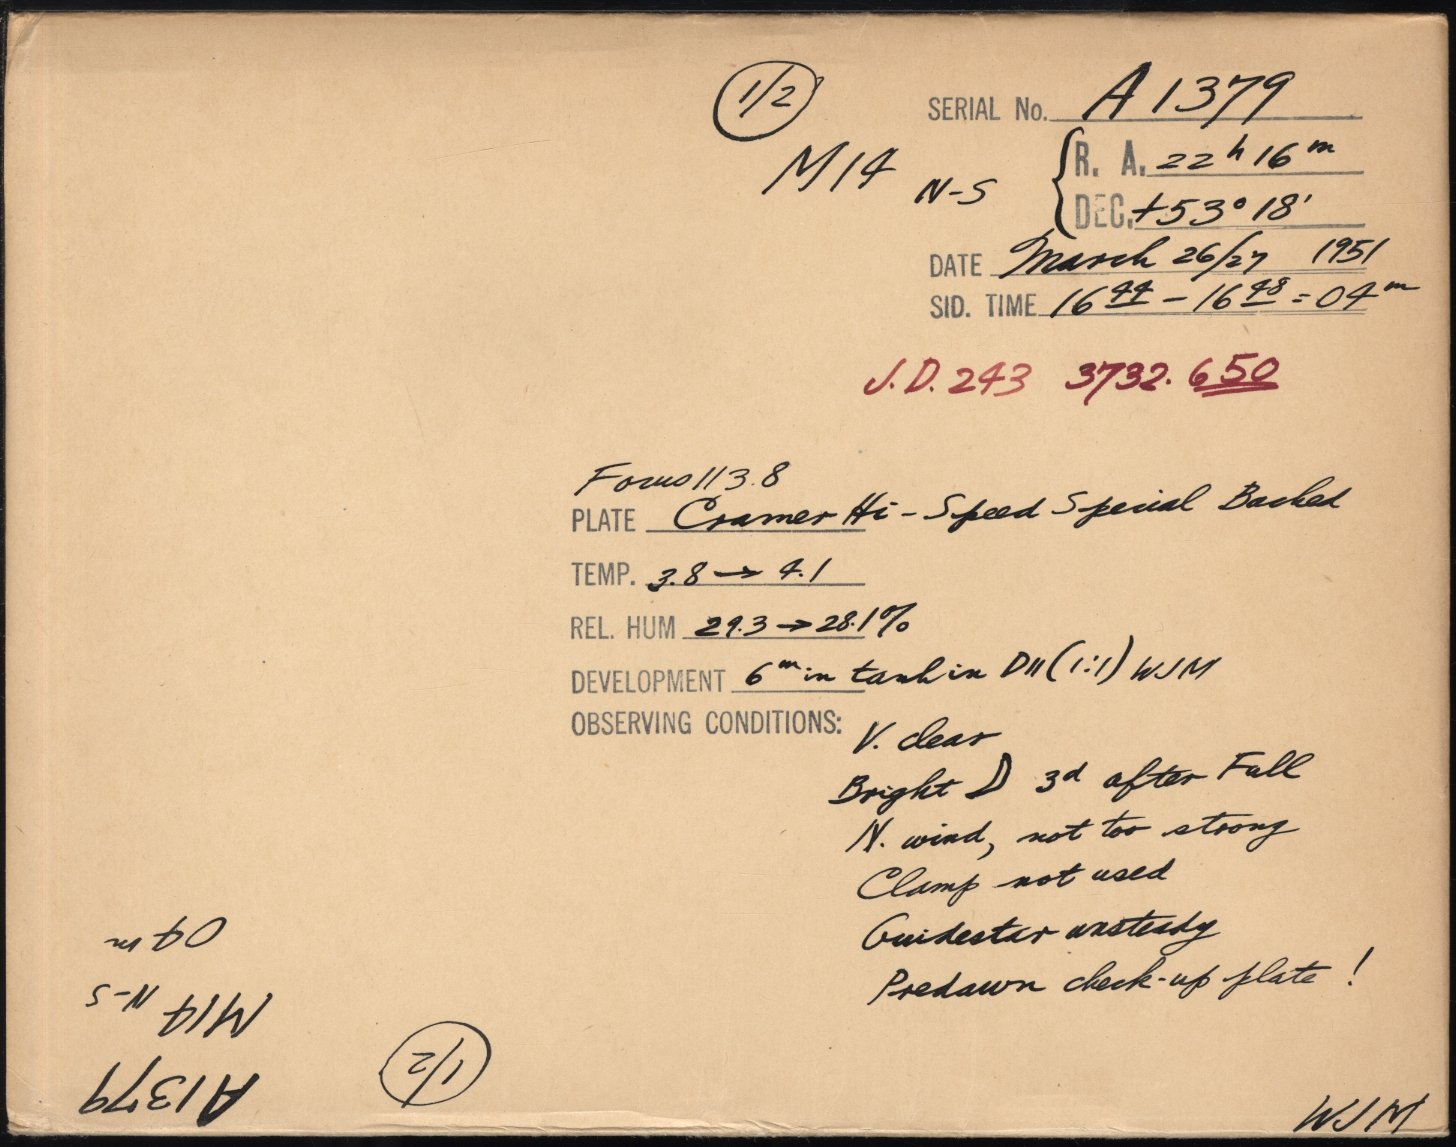 1/2
SERIAL No. A 1379
M14 N-S
R. A. 22ʰ 16ᵐ
DEC. +53° 18'
DATE March 26/27 1951
SID. TIME 16 44 - 16 48 = 04ᵐ
J.D. 243 3732.650
Focus 113.8
PLATE Cramer Hi-Speed Special Backed
TEMP. 3.8 → 4.1
REL. HUM 29.3 → 28.1%
DEVELOPMENT 6ᵐ in tank in D11 (1:1) WJM
OBSERVING CONDITIONS:
V. clear
Bright D 3ᵈ after Full
N. wind, not too strong
Clamp not used
Guidestar unsteady
Predawn check-up plate !
WJM
1/2
A1379
M14 N-S
04 m